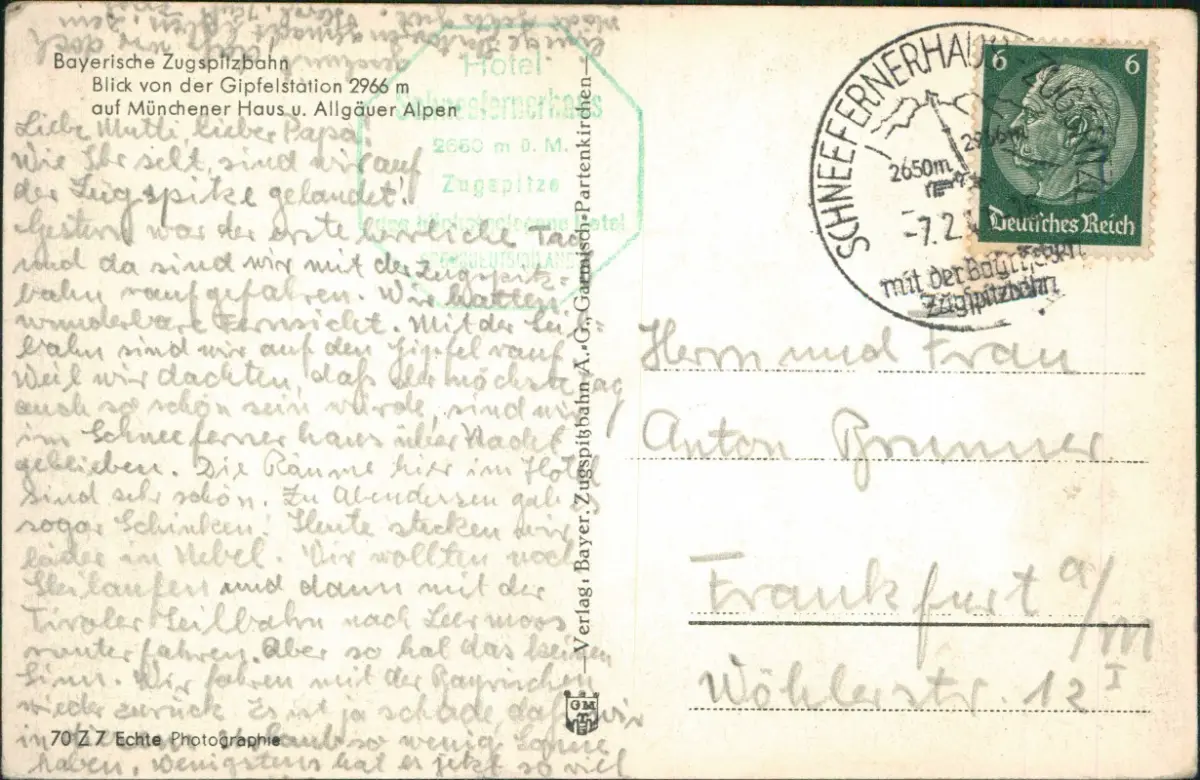 Bayerische Zugspitzbahn
Blick von der Gipfelstation 2966 m
auf Münchener Haus u. Allgäuer Alpen
Liebe Mutti, lieber Papa!
Wie Ihr seht, sind wir auf
der Zugspitze gelandet!
Gestern war der erste herrliche Tag
und da sind wir mit der Zugspitz=
bahn raufgefahren. Wir hatten
wunderbare Fernsicht. Mit der Seil=
bahn sind wir auf den Gipfel rauf
Weil wir dachten, daß der nächste Tag
auch so schön sein würde, sind wir
im Schneefernerhaus über Nacht
geblieben. Die Räume hier im Hotel
sind sehr schön. Zu Abendessen gab es
sogar Schinken! Heute stecken wir
leider in Nebel. Wir wollten noch
Skilaufen und dann mit der
Tiroler Seilbahn nach Leermoos
runterfahren. Aber so hat das keinen
Sinn. Wir fahren mit der Bayrischen
wieder zurück. Es ist ja schade, daß wir
in so wenig Sonne
haben. Wenigstens hat er jetzt so viel
70 Z 7 Echte Photographie
Hotel
Schneefernerhaus
2650 m ü. M.
Zugspitze
das höchstgelegene Hotel
Verlag: Bayer. Zugspitzbahn A.-G., Garmisch-Partenkirchen
GMD
SCHNEEFERNERHAUS-ZUGSPITZE
2650m
2966m
-7.2.
mit der Bayrischen
Zugspitzbahn
6 6
Deutsches Reich
Herrn und Frau
Anton Brunner
Frankfurt a/M
Wöhlerstr. 12 I